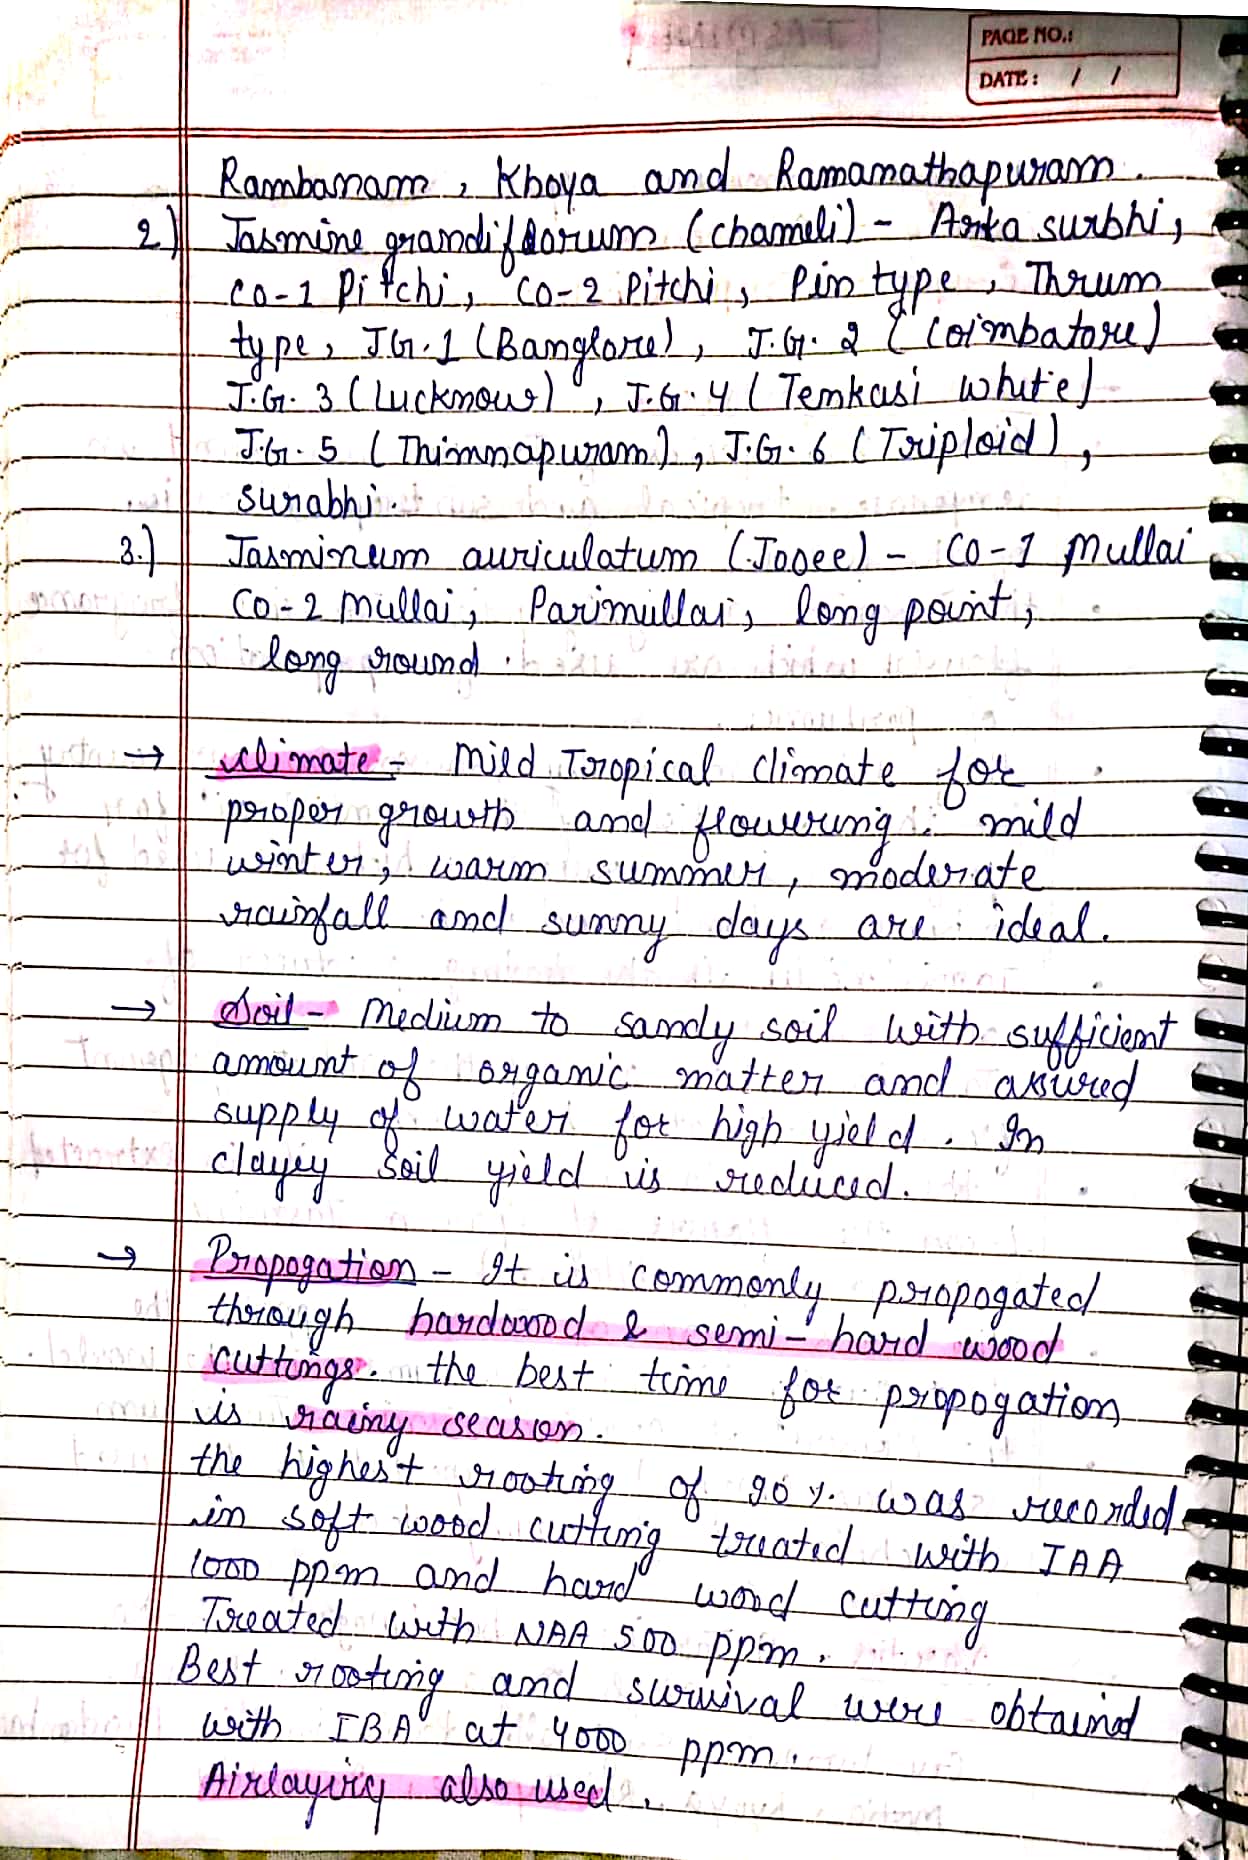 PAGE NO.:
DATE: / /
Rambanam, Khoya and Ramanathapuram.
2) Jasmine grandiflorum (chameli) - Arka surbhi,
CO-1 Pitchi, CO-2 Pitchi, Pin type, Thrum
type, J.G.1 (Banglore), J.G. 2 (Coimbatore)
J.G. 3 (Lucknow), J.G. 4 (Tenkasi white)
J.G. 5 (Thimnapuram), J.G. 6 (Triploid),
surabhi.
3.) Jasminum auriculatum (Jooee) - CO-1 Mullai
CO-2 Mullai, Parimullai, long point,
long round.
→ climate - Mild Tropical climate for
proper growth and flowering. mild
winter, warm summer, moderate
rainfall and sunny days are ideal.
→ Soil - Medium to sandy soil with sufficient
amount of organic matter and assured
supply of water for high yield. In
clayey soil yield is reduced.
→ Propogation - It is commonly propogated
through hardwood & semi-hard wood
cuttings. the best time for propogation
is rainy season.
the highest rooting of 90% was recorded
in soft wood cutting treated with IAA
1000 ppm and hard wood cutting
Treated with NAA 500 ppm.
Best rooting and survival were obtained
with IBA at 4000 ppm.
Airlayirg also used.